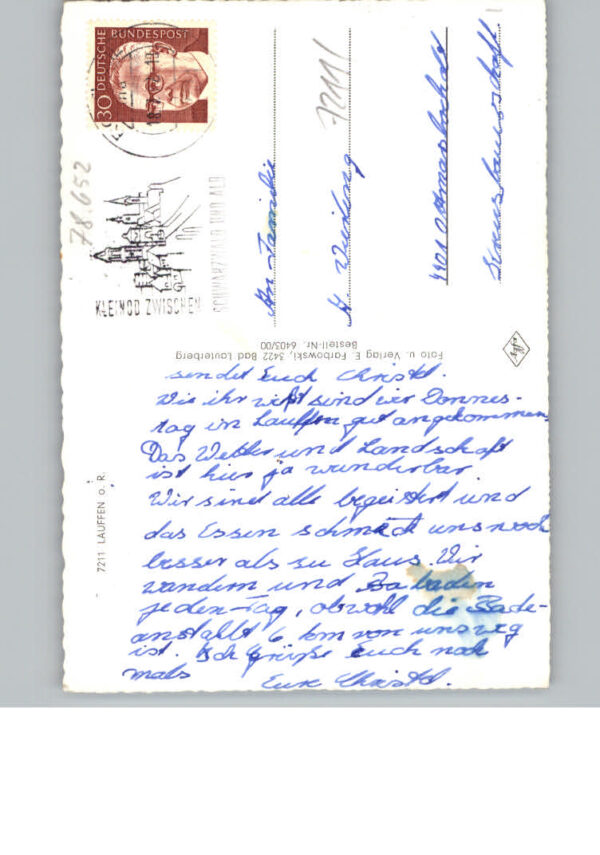 30 DEUTSCHE
BUNDESPOST
18.7.72
KLEINOD ZWISCHEN
SCHWARZWALD UND ALB
78.652
72111
An Familie
4401 Ottmarsbocholt
Foto u. Verlag E. Forbowski, 3422 Bad Lauterberg
Bestell-Nr. 6403/00
7211 LAUFFEN o. R.
sendet Euch Christel.
Wie ihr wißt sind wir Donners-
tag in Lauffen gut angekommen
Das Wetter und Landschaft
ist hier ja wunderbar.
Wir sind alle begeistert und
das Essen schmeckt uns noch
besser als zu Haus. Wir
wandern und Ba baden
jeden Tag, obwohl die Bade-
anstallt 6 km von uns weg
ist. Ich Grüße Euch noch
mals
Eure Christel.